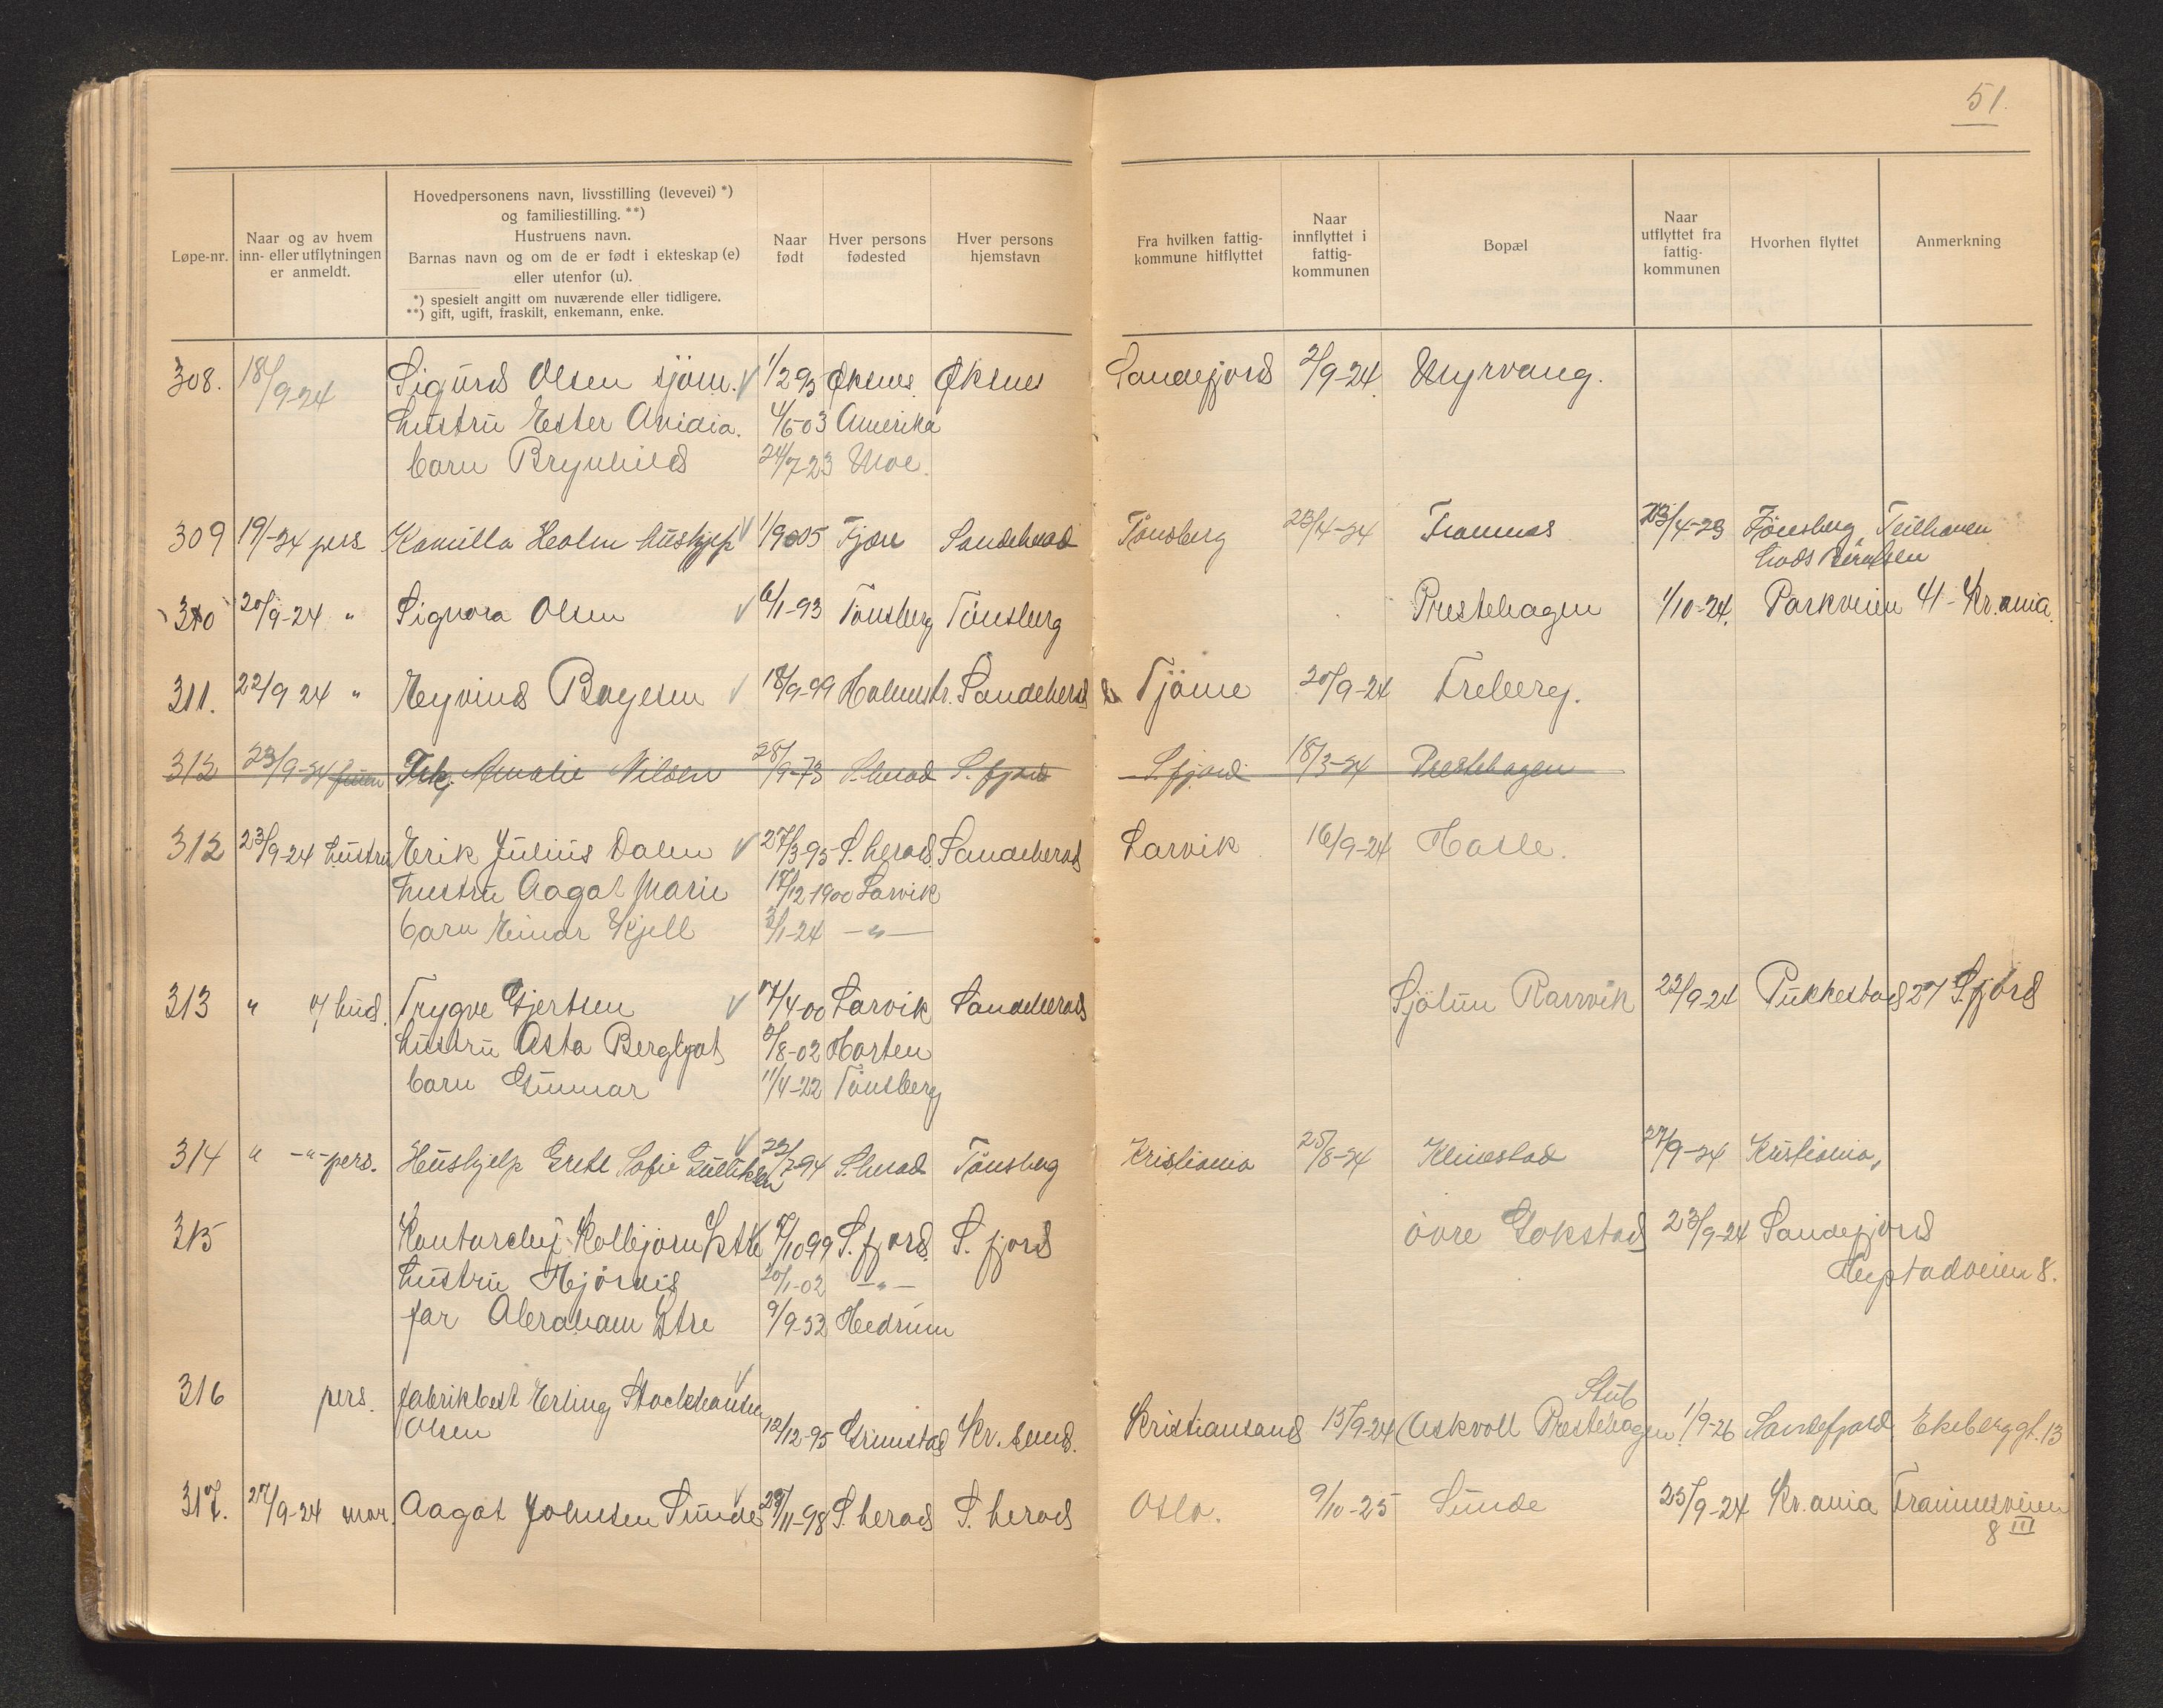 51.
Løpe-nr.
Naar og av hvem
inn- eller utflytningen
er anmeldt.
Hovedpersonens navn, livsstilling (levevei) *)
og familiestilling. **)
Hustruens navn.
Barnas navn og om de er født i ekteskap (e)
eller utenfor (u).
*) spesielt angitt om nuværende eller tidligere.
**) gift, ugift, fraskilt, enkemann, enke.
Naar
født
Hver persons
fødested
Hver persons
hjemstavn
Fra hvilken fattig-
kommune hitflyttet
Naar
innflyttet i
fattig-
kommunen
Bopæl
Naar
utflyttet fra
fattig-
kommunen
Hvorhen flyttet
Anmerkning
308. 18/9-24 Sigurd Olsen sjöm. 1/2 95 Øksnes Øksnes Sandefjord 2/9-24. Myrvang.
hustru Ester Avidia. 4/6 03 Amerika
barn Brynhild 24/7-23 Moe.
309 19/-24 pers Kamilla Holm hushjelp 1/9 05 Tjøre Sandeherad Tønsberg 23/4-24 Framnes 23/4-23 Tønsberg Teilhaven
hods Berntsen
310 20/9-24 " Signora Olsen 6/1-93 Tønsberg Tønsberg Prestehagen 1/10-24. Parkveien 41 - Kr.ania.
311. 22/9 24 " Eyvind Bøyesen 18/9-99 Holmestr. Sandeherad Tjöme 20/9-24 Freberg.
312 23/9-24 Frk. Amalie Nilsen 28/9-73 S.herad S.fjord S.fjord 18/3-24 Prestehagen
312 23/9-24 hustru Erik Julius Dalen 27/3-95 S.herad. Sandeherad Larvik 16/9-24 Hasle.
hustru Aagot Marie 17/12 1900 Larvik
barn Einar Kjell 2/1-24 -"-
313 " af hud. Trygve Gjertsen 17/4 00 Larvik Sandeherad Sjölun Ranvik 22/9-24 Pukkestad 27 S.fjord
hustru Asta Bergljot 2/8-02 Horten
barn Gunnar 11/4-22 Tönsberg
314 " -"- pers. Hushjelp Grete Sofie Gulliksen 22/7-94 S.herad Tønsberg Kristiania 25/8-24 Klinestad 27/9-24 Kristiania,
315 Kontorchef Kolbjørn Istre 7/10 99 S.fjord. S.fjord övre Gokstad 23/9-24 Sandefjord
hustru Hjördis 20/1-02 -"- Hystadveien 8.
far Abraham Istre 9/9-52 Hedrum
316 pers. fabrikbest Erling Stockhausen
Olsen 12/12-95 Grimstad Kr.sund. Kristiansand 15/9-24 (Askvoll Prestehagen Stub 1/9-26 Sandefjord Ekeberggt. 13
317. 27/9-24 mor. Aagot Johnsen Sunde 29/11-98 S.herad S.herad Oslo. 9/10-25 Sunde 25/9-24 Kr.ania Framnesveien
8 III